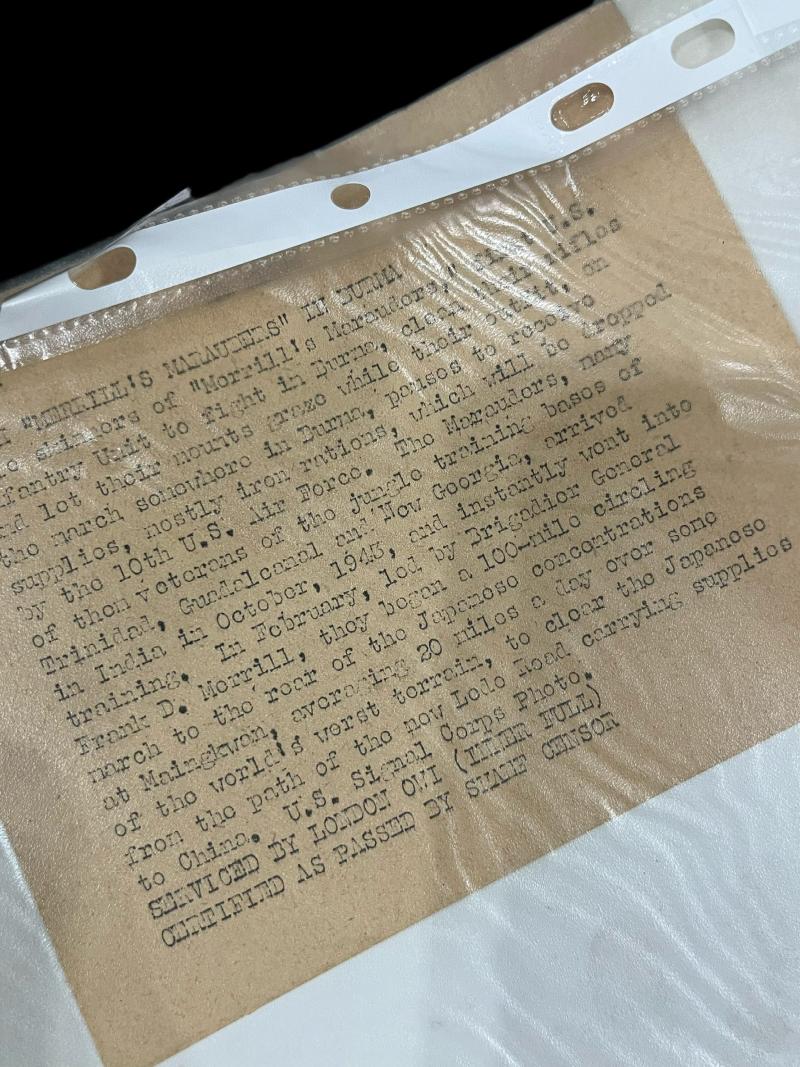 "MERRILL'S MARAUDERS" IN BURMA
skinners of "Merrill's Marauders," first U.S.
fantry Unit to fight in Burma, clean their rifles
nd let their mounts graze while their outfit, on
the march somewhere in Burma, pauses to receive
supplies, mostly iron rations, which will be dropped
by the 10th U.S. Air Force. The Marauders, many
of them veterans of the jungle training bases of
Trinidad, Guadalcanal and New Georgia, arrived
in India in October, 1943, and instantly went into
training. In February, led by Brigadier General
Frank D. Merrill, they began a 100-mile circling
march to the rear of the Japanese concentrations
at Maingkwan, averaging 20 miles a day over some
of the world's worst terrain, to clear the Japanese
from the path of the new Ledo Road carrying supplies
to China. U.S. Signal Corps Photo.
SERVICED BY LONDON OWI (INNER FULL)
CERTIFIED AS PASSED BY SHAEF CENSOR